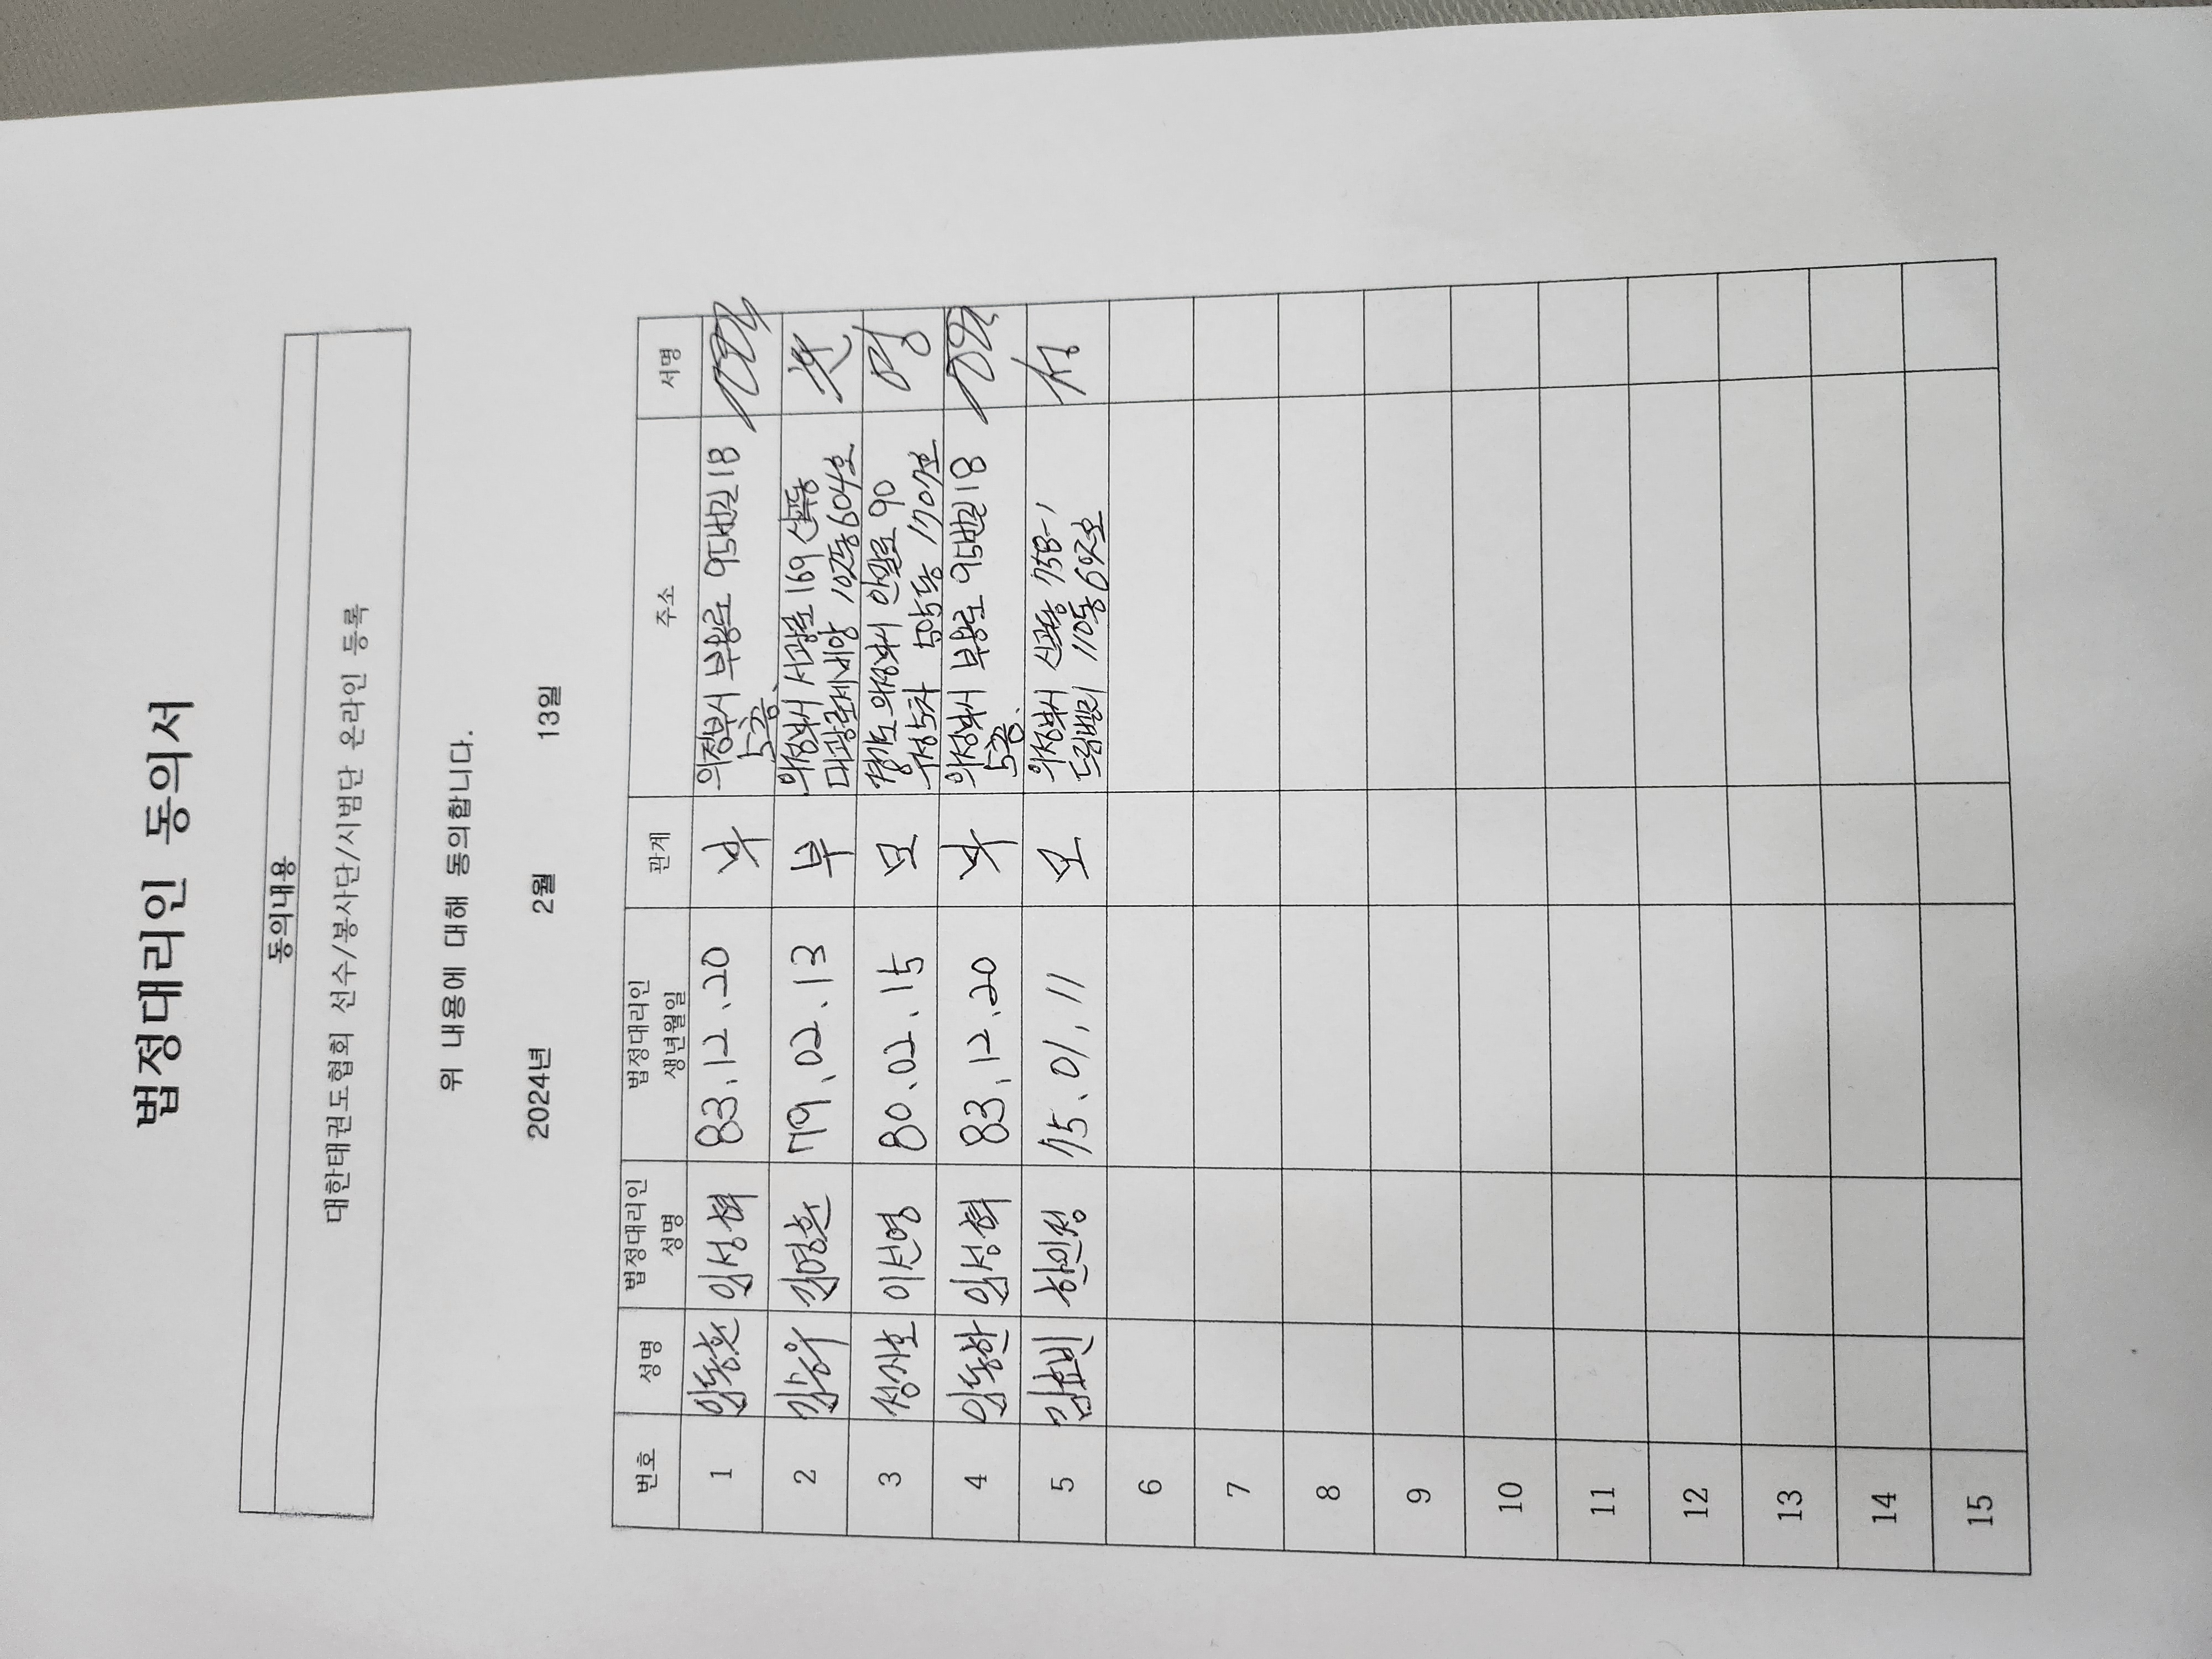 법정대리인 동의서
동의내용
대한태권도협회 선수/봉사단/시범단 온라인 등록
위 내용에 대해 동의합니다.
2024년 2월 13일
번호 성명 법정대리인 성명 법정대리인 생년월일 관계 주소 서명
1 임동훈 임성혁 83.12.20 부 의정부시 부용로 95번길 18
5층.
2 79.02.13 부 의정부시 서광로 169
102동 604호
3 성지호 이선영 80.02.15 모 경기도 의정부시 90
5차 영
4 임동환 임성혁 83.12.20 부 의정부시 부용로 95번길 18
5층.
5 김효빈 한인정 75.01.11 모 의정부시 신곡동 758-1
드림밸리 110동
6
7
8
9
10
11
12
13
14
15